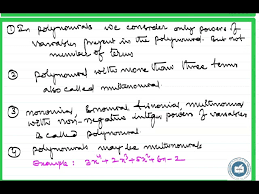 ① In polynomials we consider only powers of
variables present in the polynomial but not
number of terms
② Polynomial with more than three terms
also called multinomial
③ monomial, Binomial trinomial, multinomial
with non-negative integer powers of variables
is called polynomial
④ polynomials may be multinomials
Example: 3x⁴+2x³+5x²+6x-2